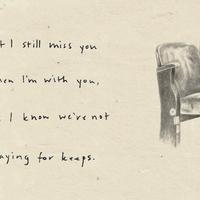 t I still miss you
hen I'm with you,
I know we're not
aying for keeps.